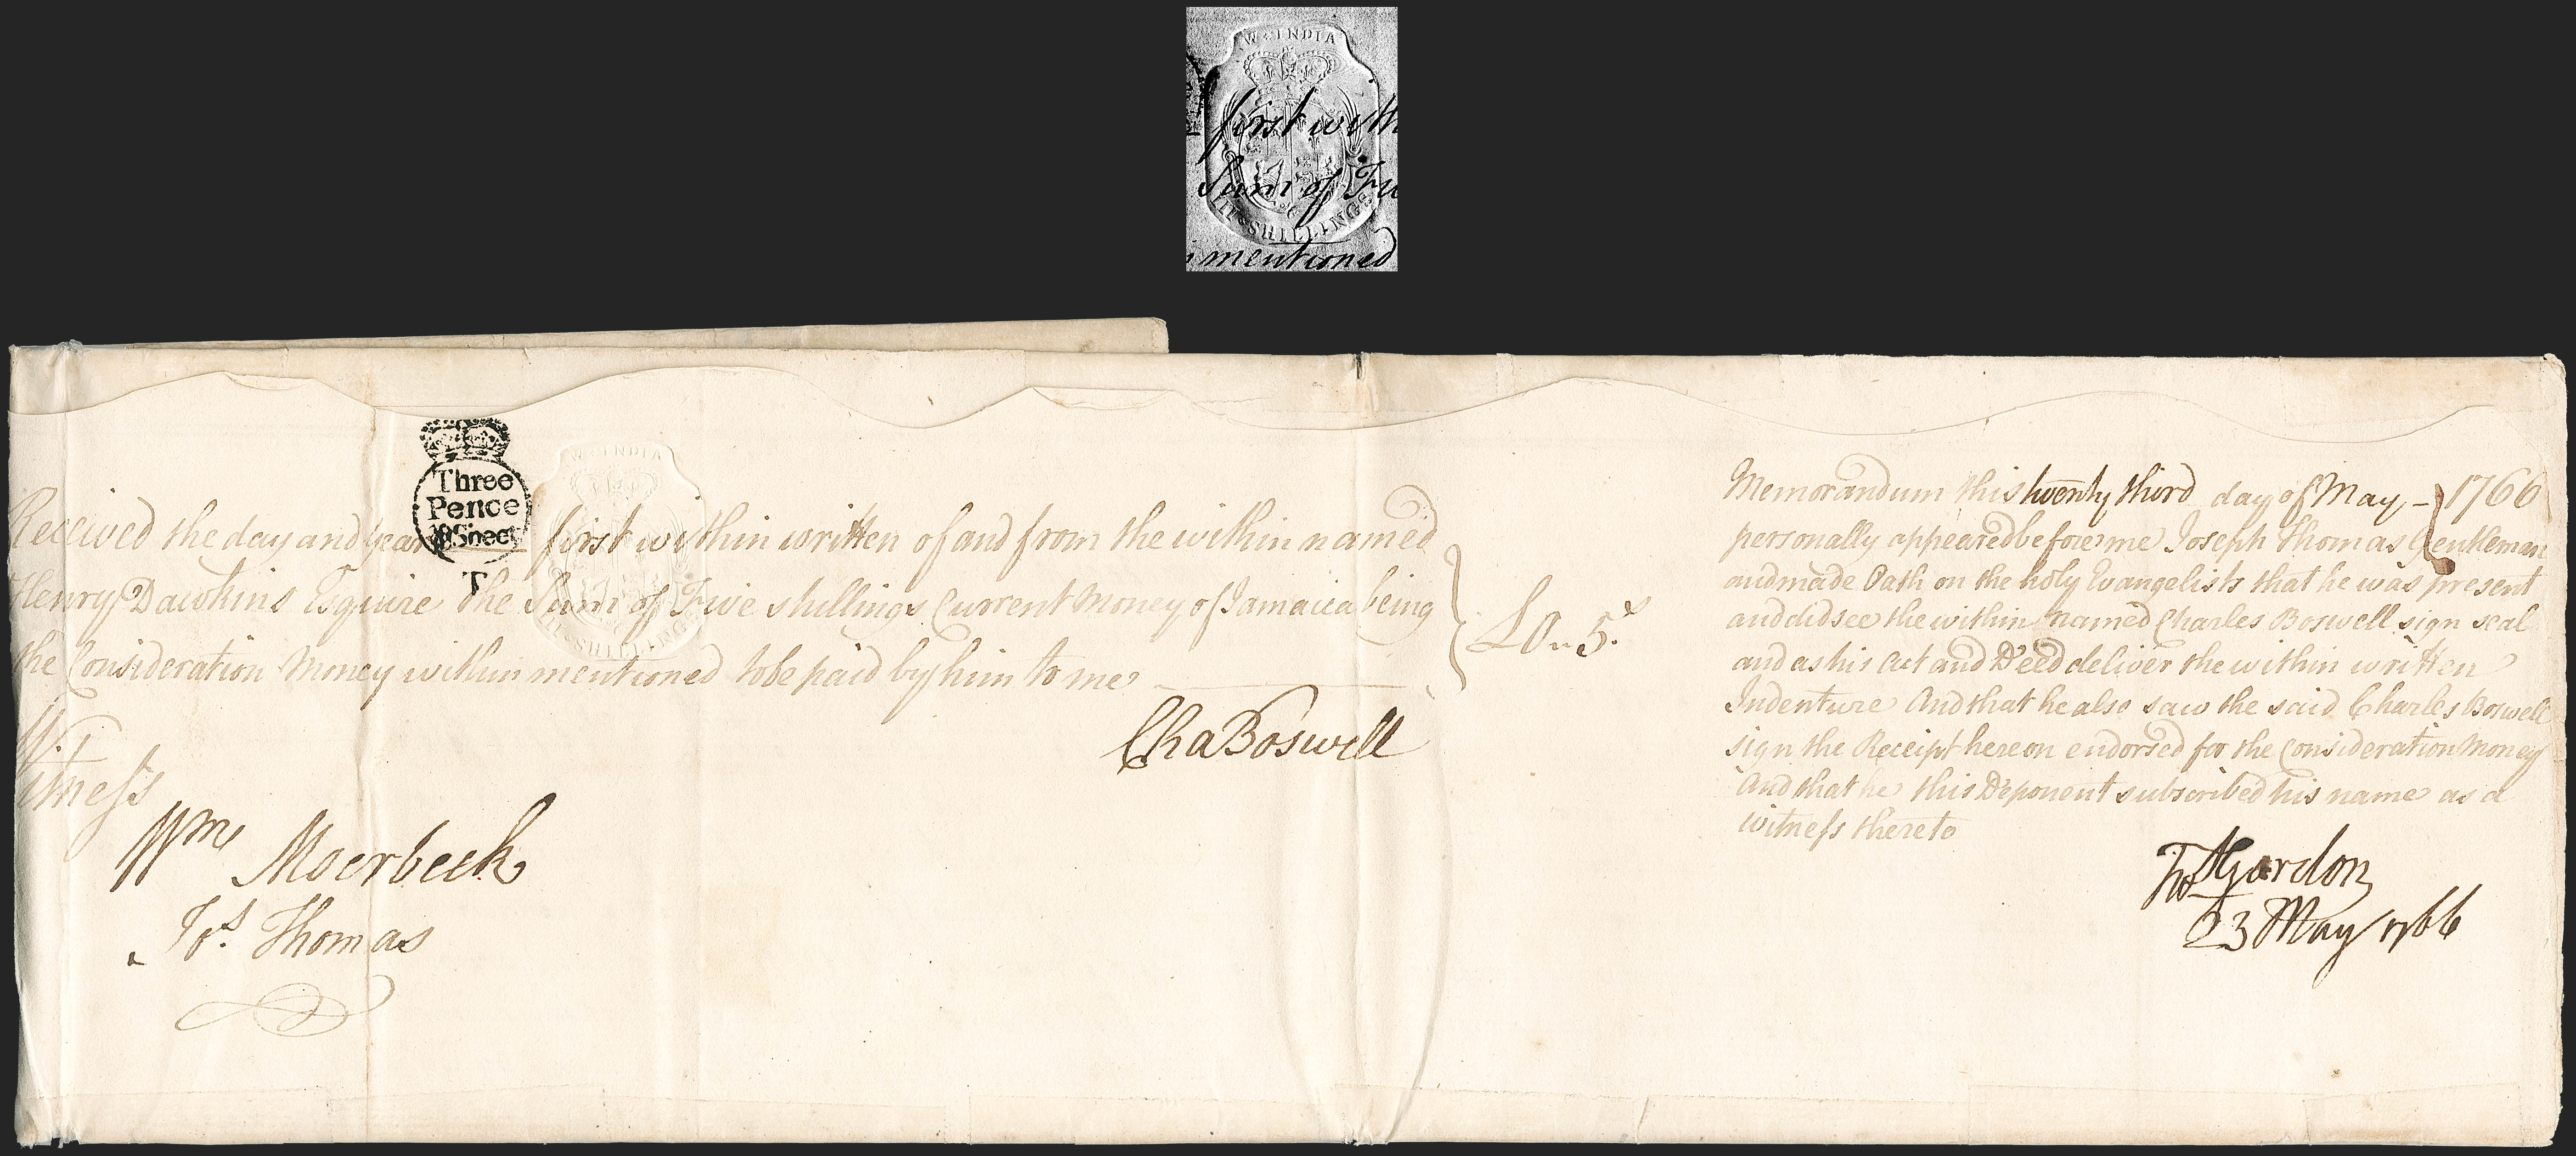 W. INDIA
first with
Sum of Fiv
III SHILLINGS
mentioned
Three
Pence
℔ Sheet
T
W. INDIA
III SHILLINGS
Received the day and Year first within written of and from the within named
Henry Dawkins Esquire The Sum of Five shillings Current Money of Jamaica being
the Consideration Money within mentioned tobe paid by him to me
£0 " 5.s
Cha Boswell
Witness
Wm Moerbeck
Jos. Thomas
Memorandum this twenty third day of May - 1766
personally appeared before me Joseph Thomas Gentleman
and made Oath on the holy Evangelists that he was present
and did see the within named Charles Boswell sign seal
and as his Act and Deed deliver the within written
Indenture And that he also saw the said Charles Boswell
sign the Receipt hereon endorsed for the Consideration Money
And that he this Deponent subscribed his name as a
witness thereto
Gordon
23 May 1766